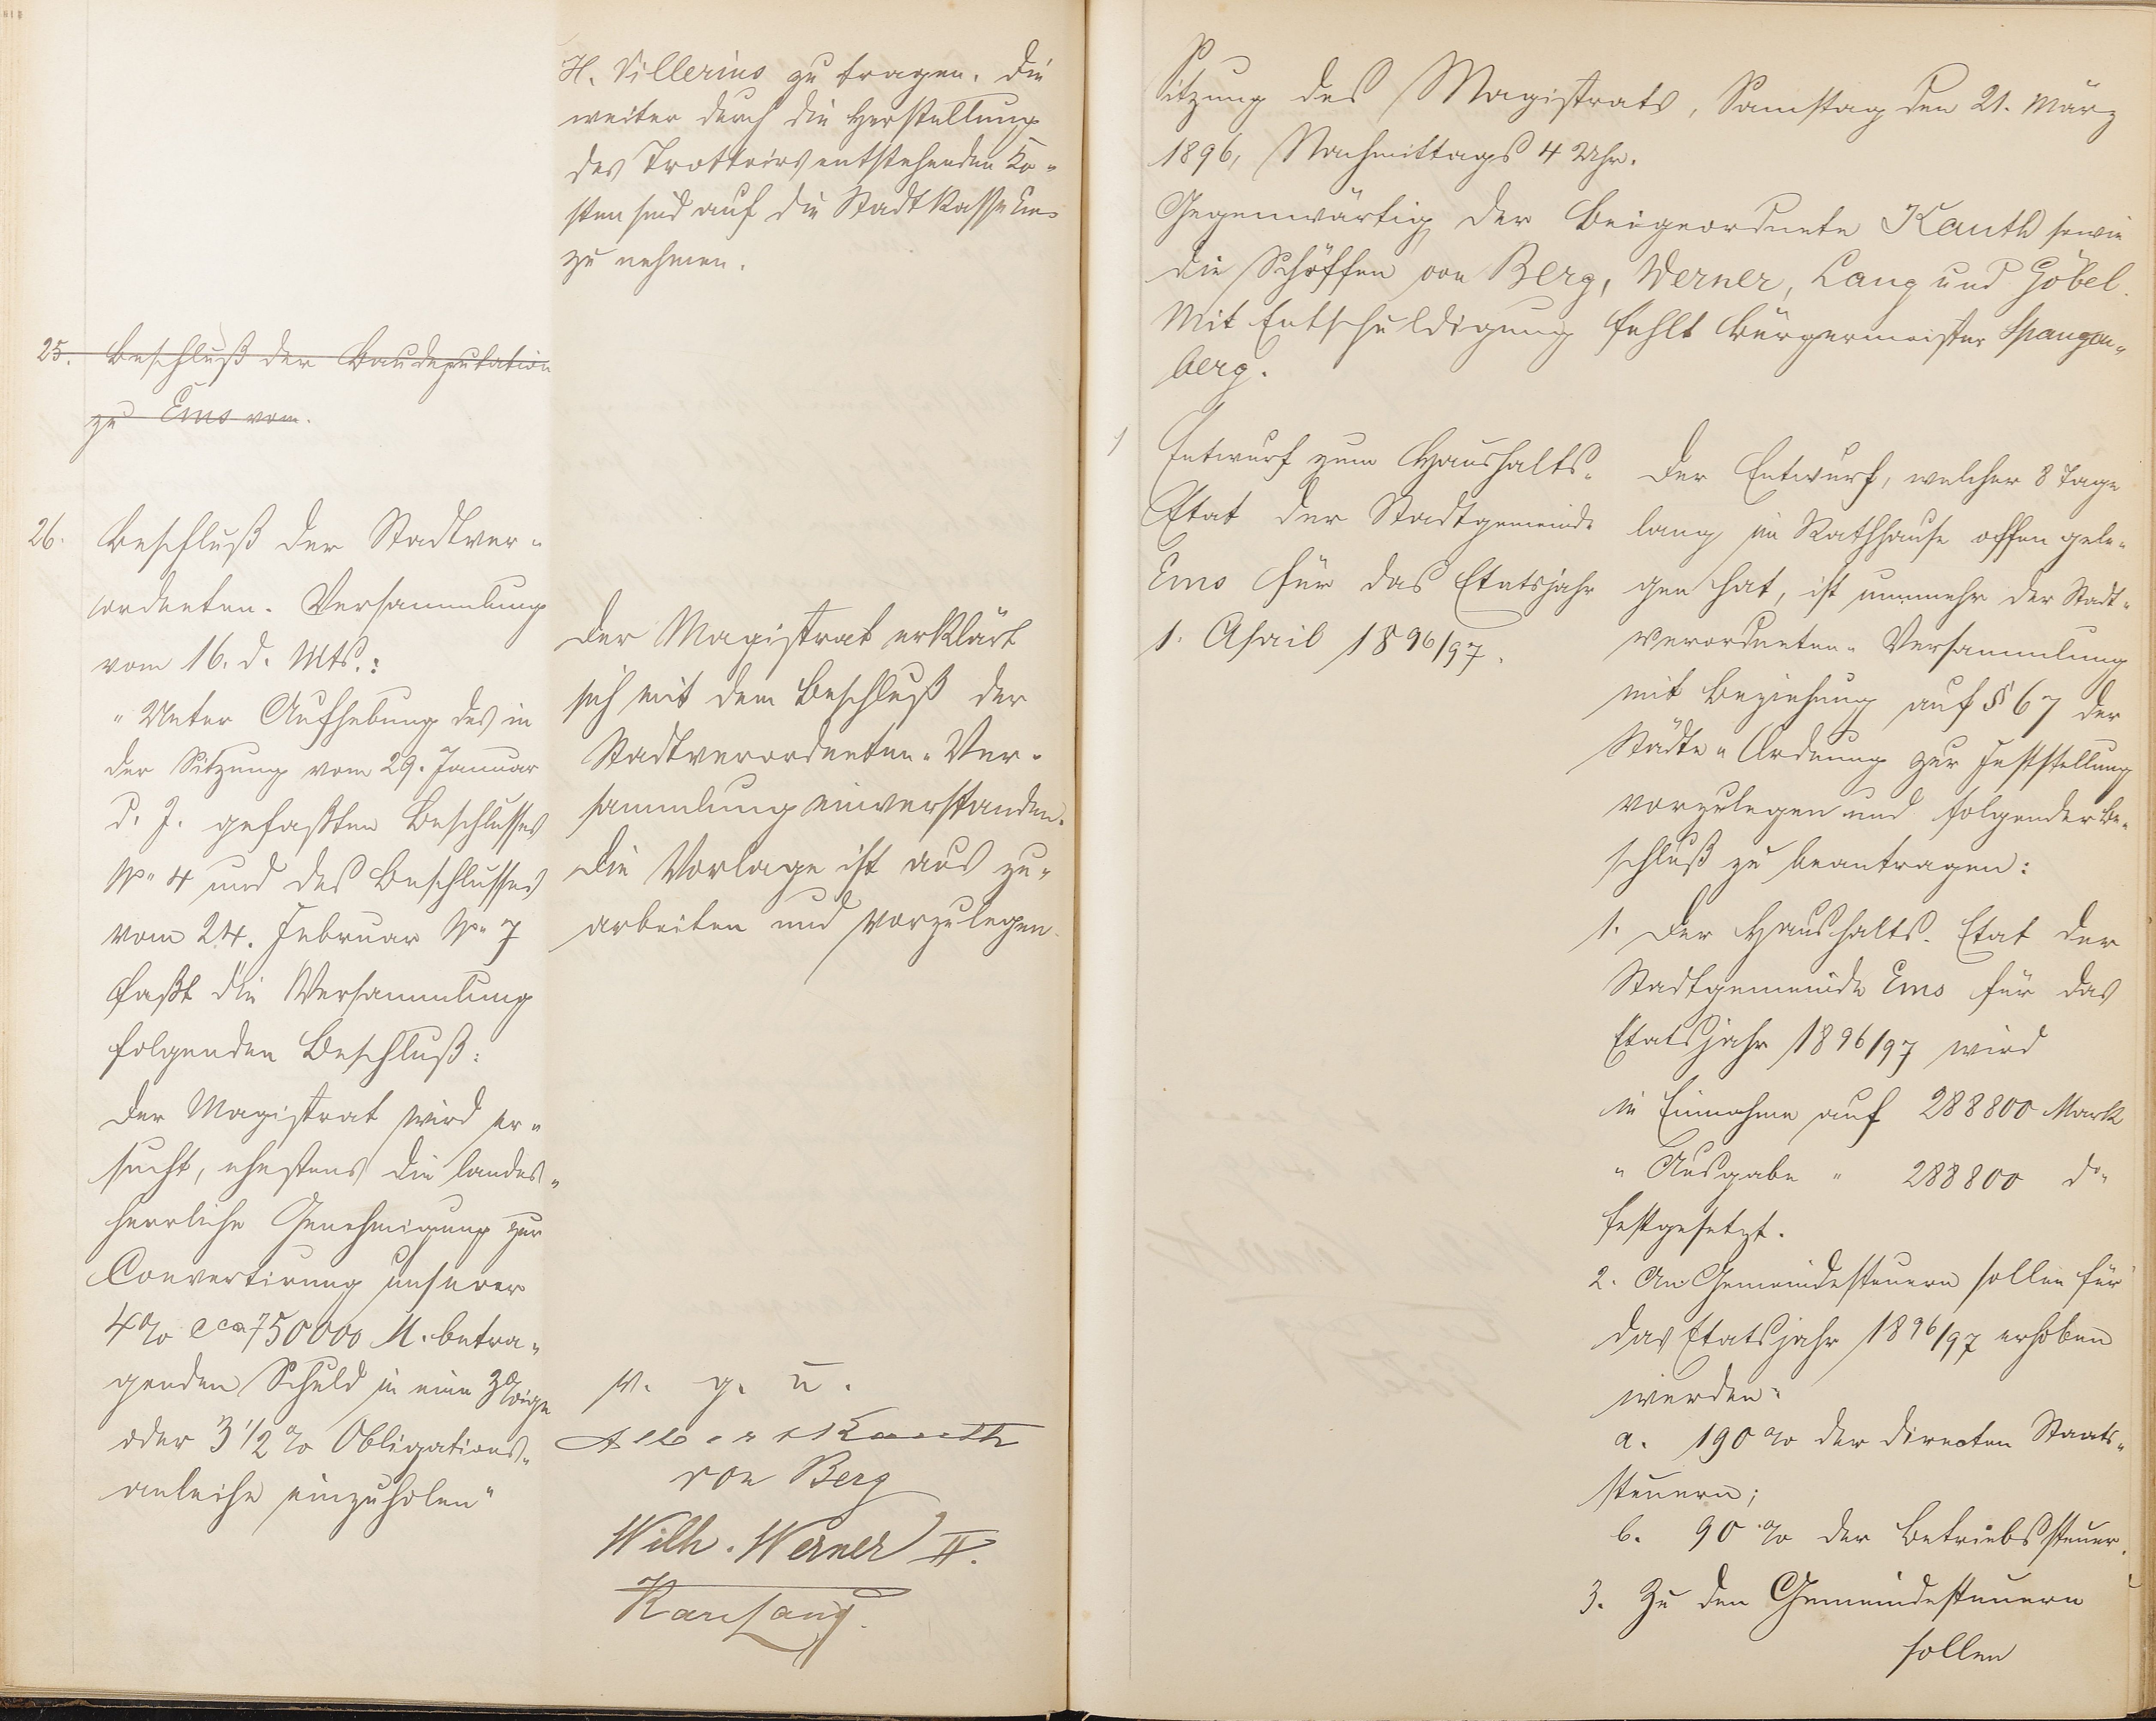 H. Villerius zu tragen. Die
weiter durch die Herstellung
des Trottoirs entstehenden Ko-
sten sind auf die Stadtkasse
zu nehmen.
25. Beschluß der Baudeputation
zu Ems vom.
26. Beschluß der Stadtver-
ordneten-Versammlung
vom 16. d. Mts.:
"Unter Aufhebung des in
der Sitzung vom 29. Januar
d. J. gefaßten Beschlusses
No 4 und des Beschlusses
vom 24. Februar No 7
faßt die Versammlung
folgenden Beschluß:
Der Magistrat wird er-
sucht, ehestens die landes-
herrliche Genehmigung zur
Convertirung unserer
4% cca 750000 M. betra-
genden Schuld in eine 3%ige
oder 3 1/2 % Obligations-
anleihe einzuholen"
Der Magistrat erklärt
sich mit dem Beschluß der
Stadtverordneten-Ver-
sammlung einverstanden.
Die Vorlage ist aus zu-
arbeiten und vorzulegen.
v. g. u.
Albert Kauth
von Berg
Wilh. Werner II.
Karl Lang.
Sitzung des Magistrats, Samstag den 21. März
1896, Nachmittags 4 Uhr.
Gegenwärtig der Beigeordnete Kauth sowie
die Schöffen von Berg, Werner, Lang und Göbel.
Mit Entschuldigung fehlt Bürgermeister Spangen-
berg.
1 Entwurf zum Haushalts-
Etat der Stadtgemeinde
Ems für das Etatsjahr
1. April 1896/97.
Der Entwurf, welcher 8 Tage
lang im Rathhause offen gele-
gen hat, ist nunmehr der Stadt-
verordneten-Versammlung
mit Beziehung auf § 67 der
Städte-Ordnung zur Feststellung
vorzulegen und folgender Be-
schluß zu beantragen:
1. Der Haushalts-Etat der
Stadtgemeinde Ems für das
Etatsjahr 1896/97 wird
in Einnahme auf 288800 Mark
" Ausgabe " 288800 do
festgesetzt.
2. An Gemeindesteuern sollen für
das Etatsjahr 1896/97 erhoben
werden:
a. 190 % der directen Staats-
steuern;
b. 90 % der Betriebssteuer.
3. Zu den Gemeindesteuern
sollen